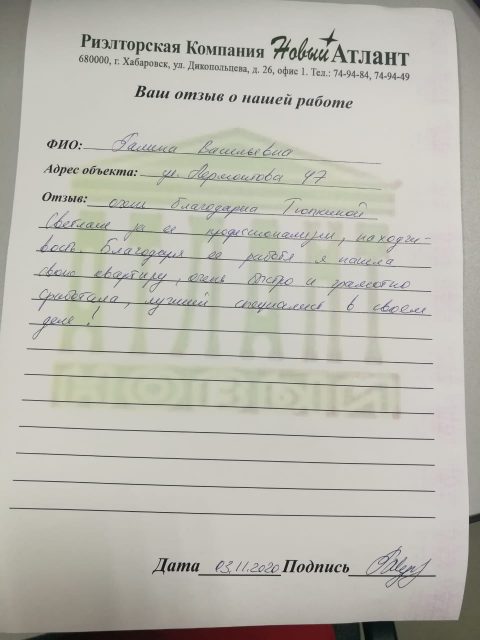 Риэлторская Компания Новый Атлант
680000, г. Хабаровск, ул. Дикопольцева, д. 26, офис 1. Тел.: 74-94-84, 74-94-49
Ваш отзыв о нашей работе
ФИО: Галина Васильевна
Адрес объекта: ул. Лермонтова 47
Отзыв: очень благодарна Тюпкиной
Светлане за ее профессионализм, находчи-
вость. Благодаря ее работе я нашла
свою квартиру, очень быстро и грамотно
сработала, лучший специалист в своем
деле!
Дата 03.11.2020 Подпись